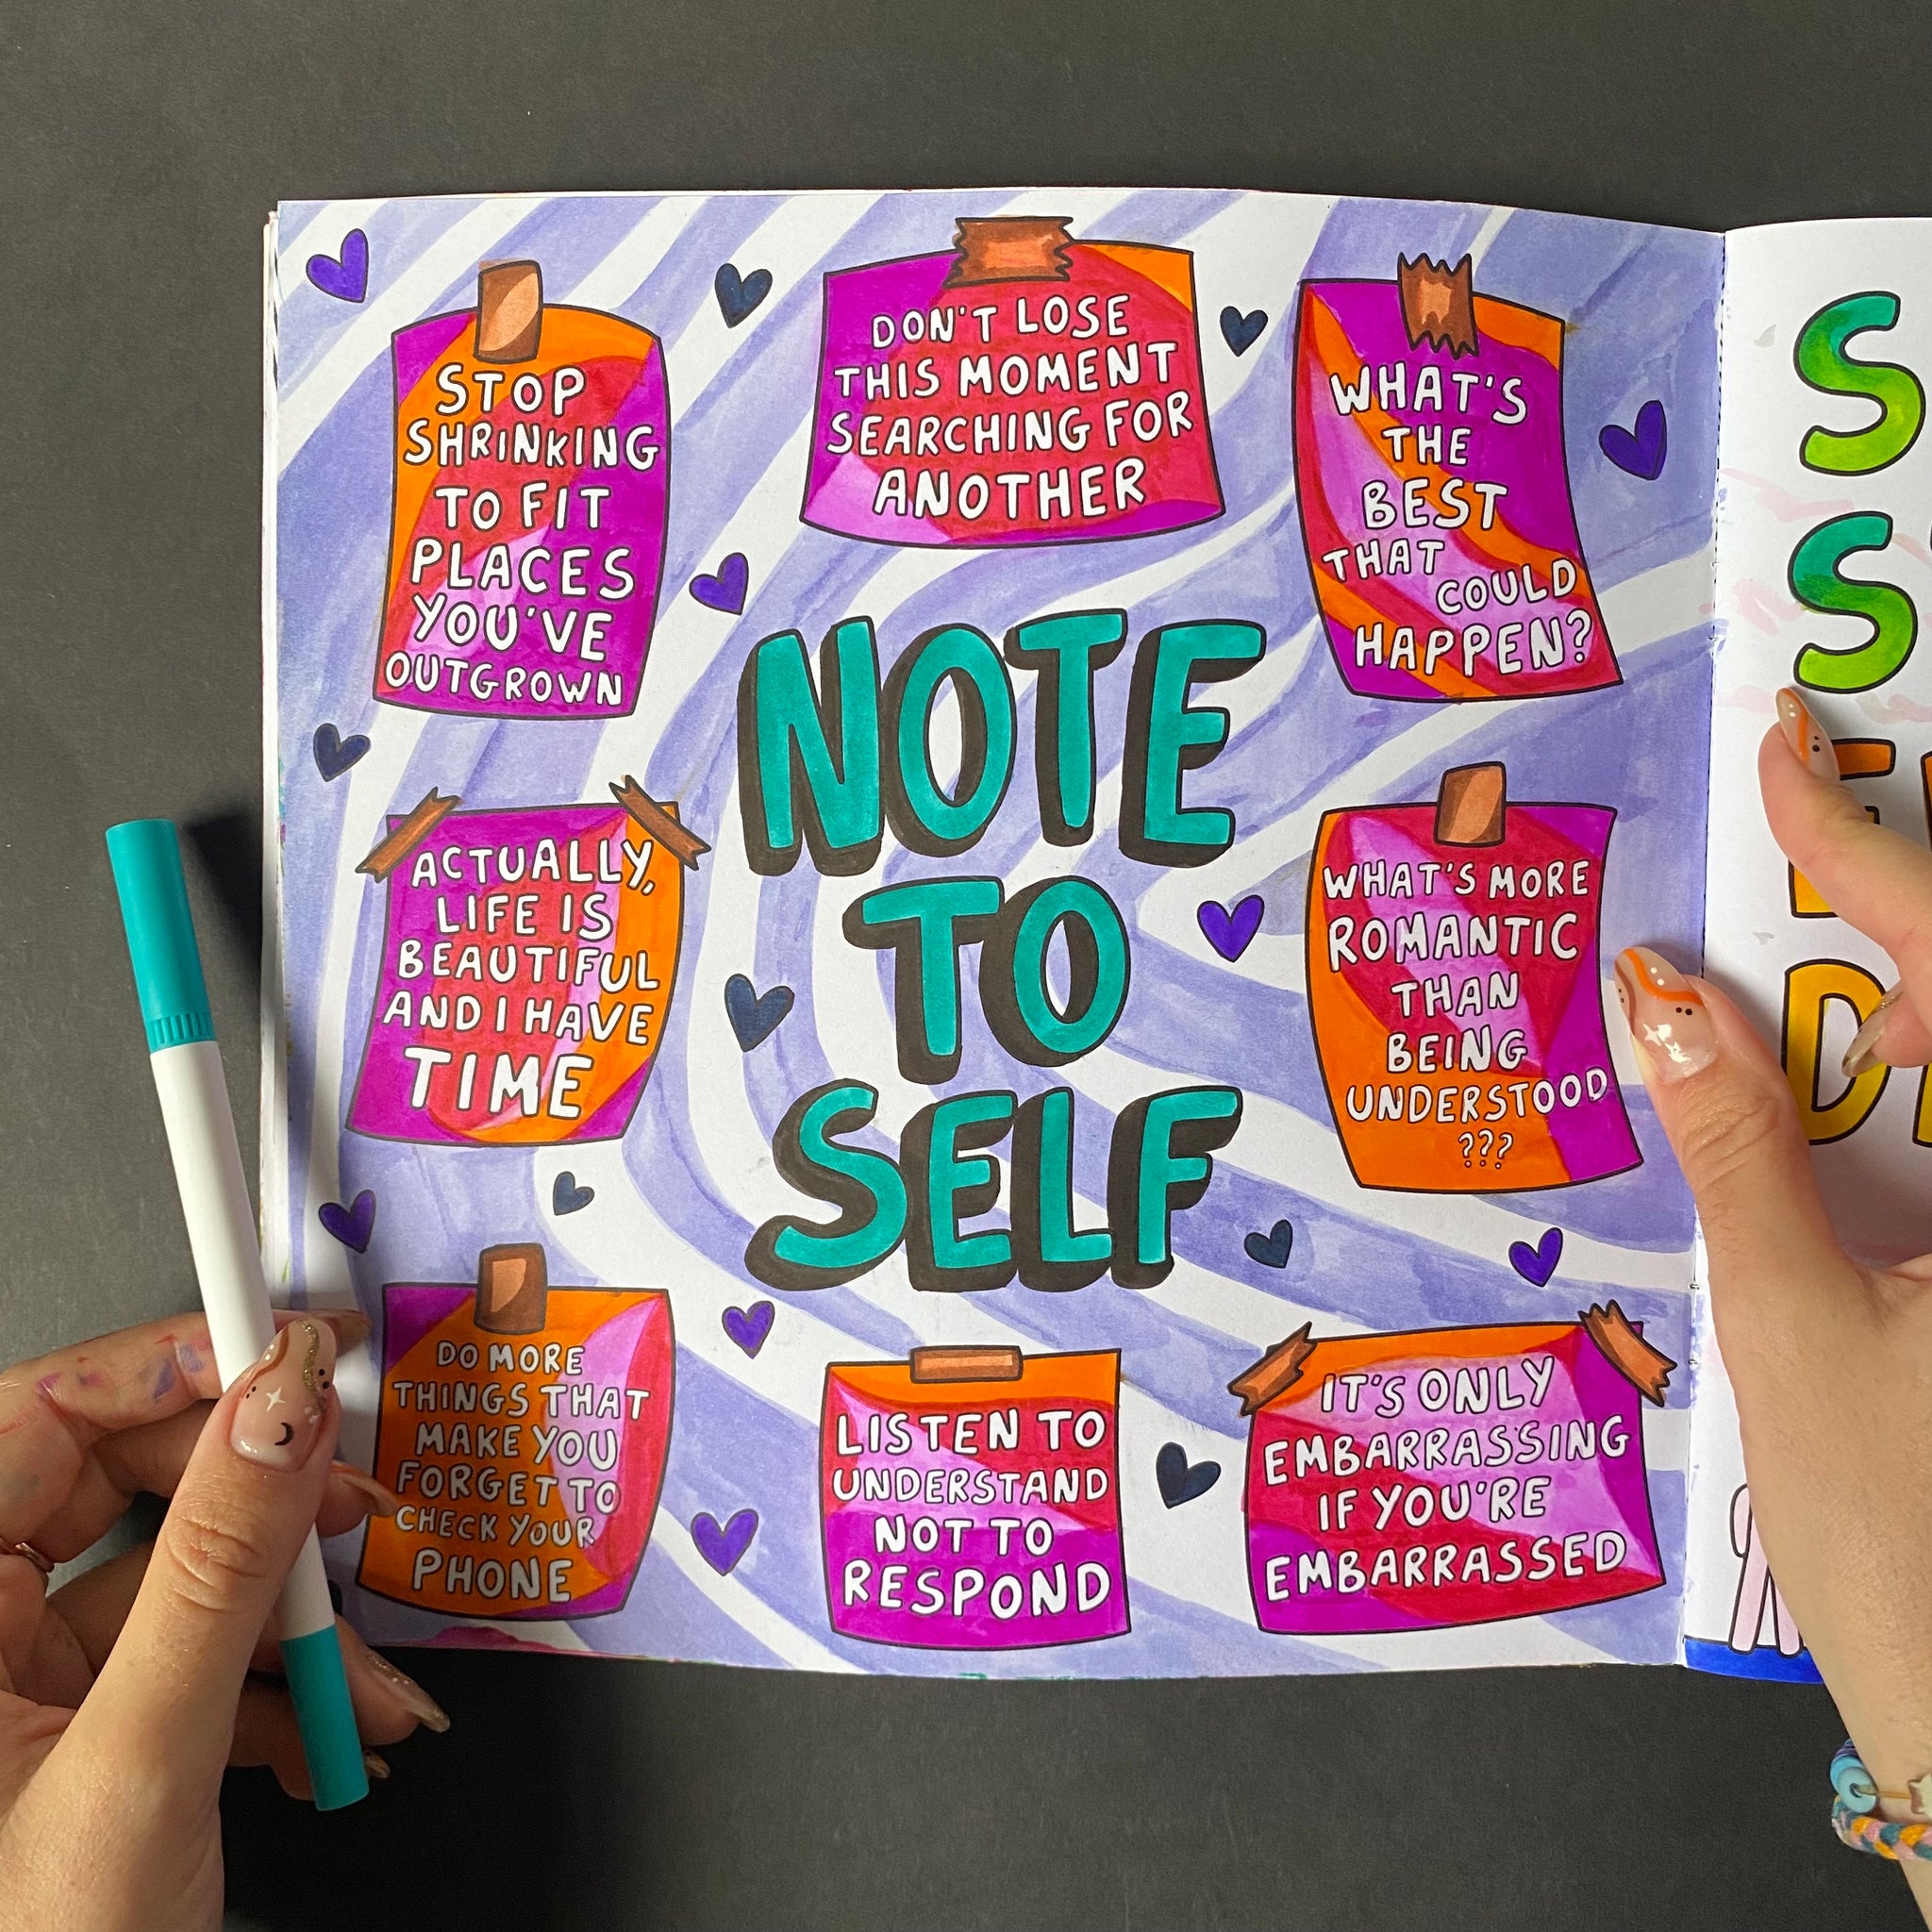 STOP
SHRINKING
TO FIT
PLACES
YOU'VE
OUTGROWN
DON'T LOSE
THIS MOMENT
SEARCHING FOR
ANOTHER
WHAT'S
THE
BEST
THAT
COULD
HAPPEN?
NOTE
TO
SELF
ACTUALLY,
LIFE IS
BEAUTIFUL
AND I HAVE
TIME
WHAT'S MORE
ROMANTIC
THAN
BEING
UNDERSTOOD
???
DO MORE
THINGS THAT
MAKE YOU
FORGET TO
CHECK YOUR
PHONE
LISTEN TO
UNDERSTAND
NOT TO
RESPOND
IT'S ONLY
EMBARRASSING
IF YOU'RE
EMBARRASSED
S
S